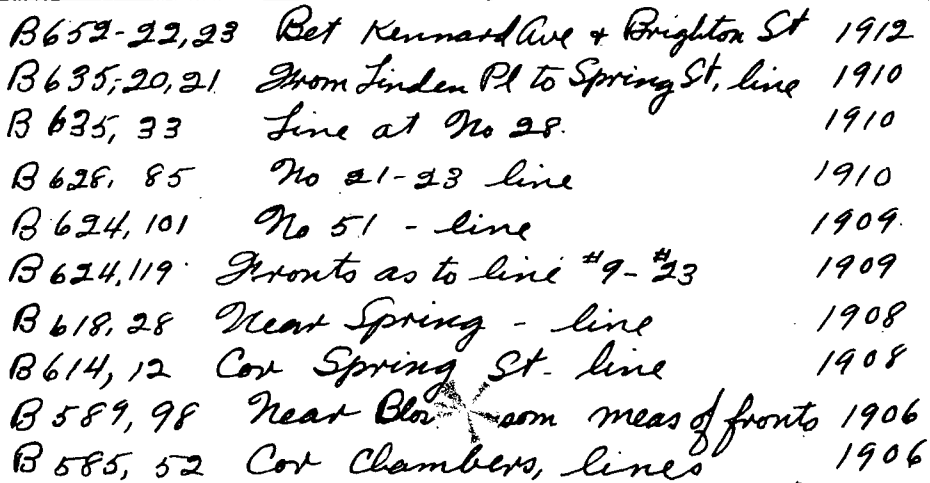 B652-22,23 Bet Kennard Ave + Brighton St 1912
B635,20,21 From Linden Pl to Spring St, line 1910
B 635, 33 Line at No 28. 1910
B 628, 85 No 21-23 line 1910
B 624, 101 No 51 - line 1909.
B 624,119 Fronts as to line #9-#23 1909
B 618, 28 Near Spring - line 1908
B 614, 12 Cor Spring St. line 1908
B 589, 98 Near Blossom meas of fronts 1906
B 585, 52 Cor Chambers, lines 1906